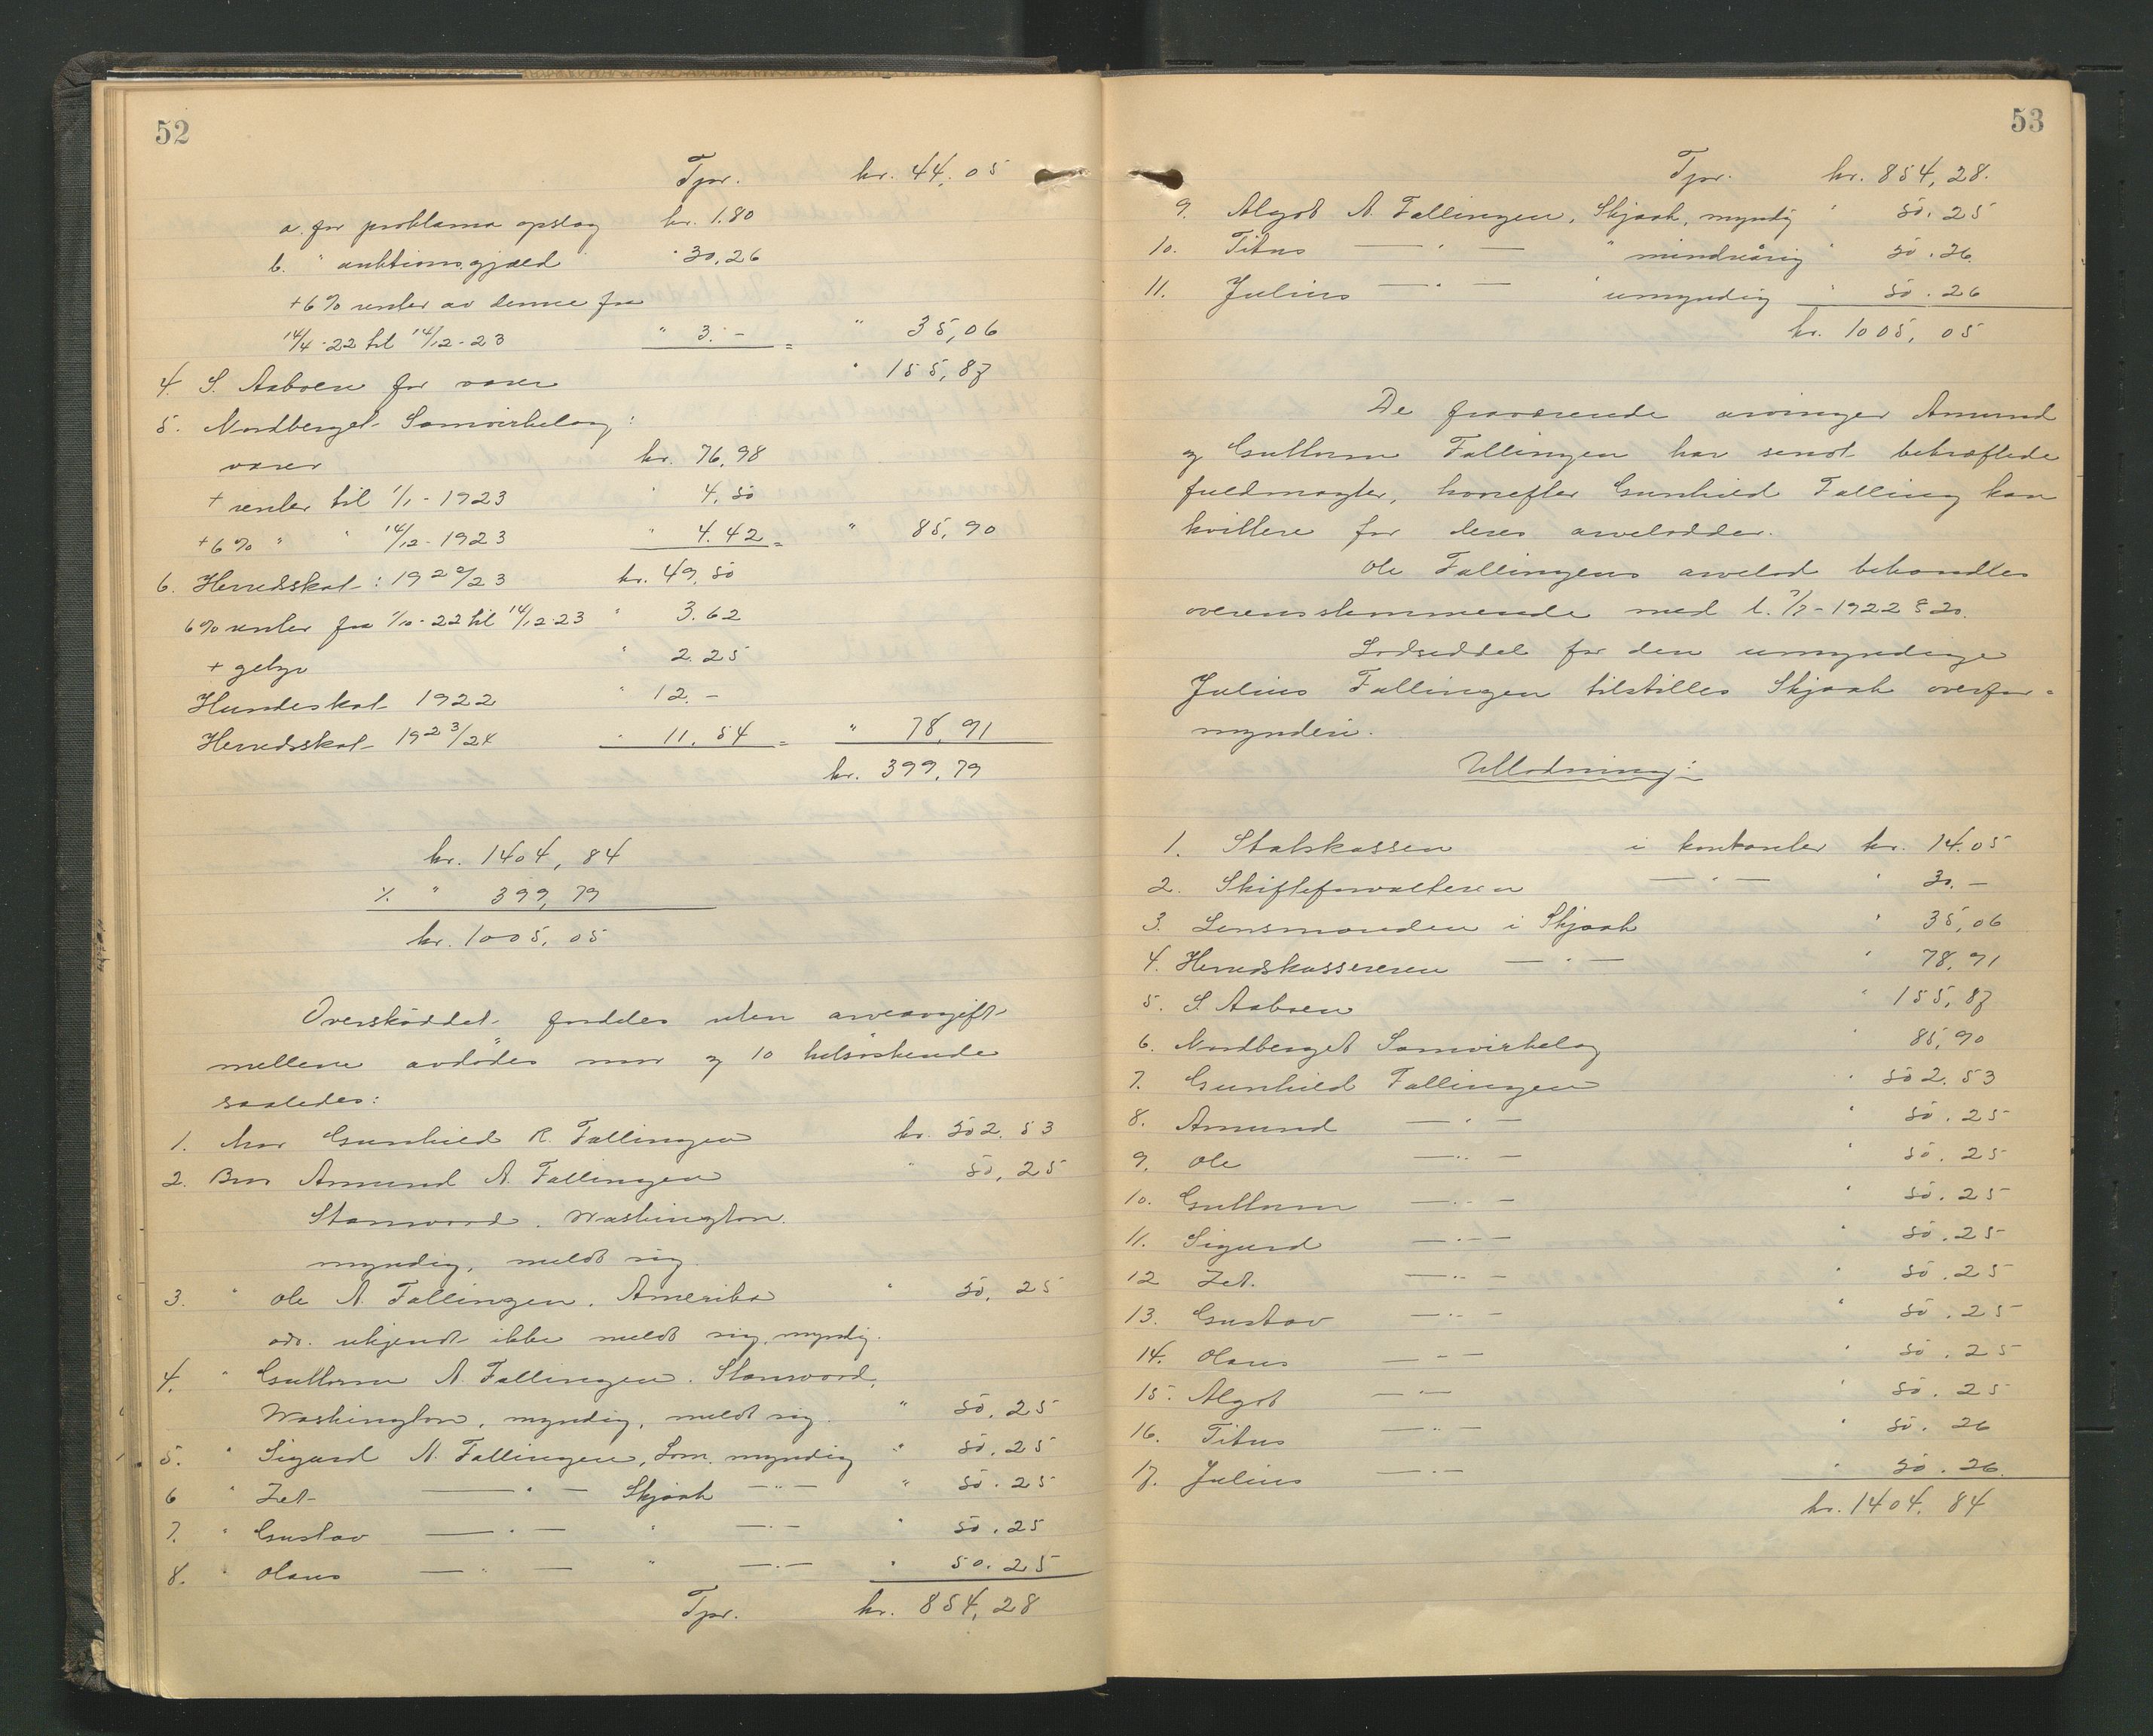 52
Tpr. kr. 44,05
a. for proklama opslag kr. 1.80
b. " auktionsgjæld " 30,26
+ 6% renter av denne fra
14/4-22 til 14/12-23 " 3.- = " 35,06
4. S. Aaboen for varer " 155,87
5. Nordberget Samvirkelag:
varer kr. 76,98
+ renter til 1/1-1923 " 4,50
+ 6% " " 14/12-1923 " 4.42 = " 85,90
6. Herredskat: 1922/23 kr. 49,50
6% renter fra 1/10-22 til 14/12-23 " 3.62
+ gebyr " 2.25
Hundeskat 1922 " 12.-
Herredsskat 1923/24 " 11,54 = " 78,91
kr. 399,79
kr. 1404,84
÷ " 399,79
kr. 1005,05
Overskuddet fordeles uten arveavgift
mellem avdødes mor og 10 helsøskende
saaledes:
1. Mor Gunhild R. Fallingen kr. 502.53
2. Bror Amund A. Fallingen " 50,25
Stanwood, Washington.
myndig, meldt sig.
3. " Ole A. Fallingen, Amerika " 50,25
adr. ukjendt ikke meldt sig, myndig.
4. " Guttorm A. Fallingen. Stanwood,
Washington, myndig, meldt sig. " 50,25
5. " Sigurd A. Fallingen, Lom, myndig " 50,25
6 " Zet — " — Skjaak — " — " 50.25
7. " Gustav — " — " — " — " 50.25
8. " Olaus — " — " — " — " 50.25
Tpr. kr. 854,28
53
Tpr. kr. 854,28.
9. Algot A. Fallingen, Skjaak, myndig " 50.25
10. Titus — " — " mindreårig " 50.26
11. Julius — " — " umyndig " 50.26
kr. 1005,05
De fraværende arvinger Amund
og Guttorm Fallingen har sendt bekræftede
fuldmagter, hvorefter Gunhild Falling kan
kvittere for deres arvelodder.
Ole Fallingens arvelod behandles
overensstemmende med l. 7/7-1922 § 20.
Lodseddel for den umyndige
Julius Fallingen tilstilles Skjaak overfor-
mynderi.
Utlodning:
1. Statskassen i kontanter kr. 14.05
2. Skifteforvalteren — " — " 30.-
3. Lensmanden i Skjaak " 35,06
4. Herredskassereren — " — " 78,91
5. S. Aaboen " 155,87
6. Nordberget Samvirkelag " 85,90
7. Gunhild Fallingen " 502.53
8. Amund — " — " 50.25
9. Ole — " — " 50.25
10. Guttorm — " — " 50.25
11. Sigurd — " — " 50.25
12 Zet. — " — " 50.25
13. Gustav — " — " 50.25
14. Olaus — " — " 50.25
15. Algot — " — " 50.25
16. Titus — " — " 50.26
17. Julius — " — " 50.26
kr. 1404,84